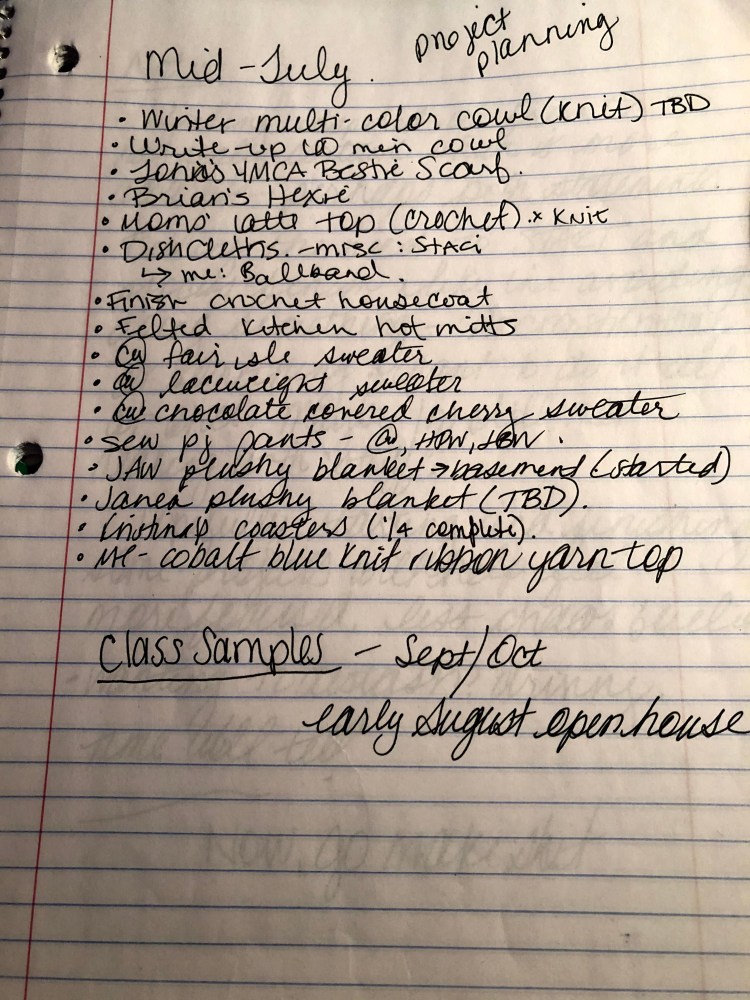 project
planning
Mid-July.
• Winter multi-color cowl (knit) TBD
• Write-up 60 min cowl
• John's YMCA Bestie Scarf.
• Brian's Hexie
• Moms' latte top (crochet).* Knit
• Dishcloths. - misc : Staci
↳ me: Ballband.
• Finish crochet housecoat
• Felted kitchen hot mitts
• fair isle sweater
• laceweight sweater
• chocolate covered cherry sweater
• sew pj pants - @, HOW, .
• JAW plushy blanket → basement (started)
• plushy blanket (TBD).
• coasters (1/4 complete).
• ME- cobalt blue knit ribbon yarn top
Class Samples - Sept/Oct
early August open house
Now, go make